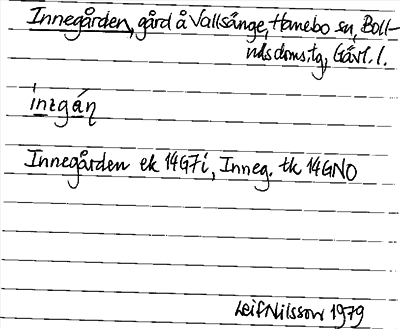 Innegården, gård å Vallsänge, Hanebo sn, Boll-
näs doms.tg, Gävl. l.
ìnegán
Innegården ek 14G7i, Inneg. tk 14GNO
Leif Nilsson 1979